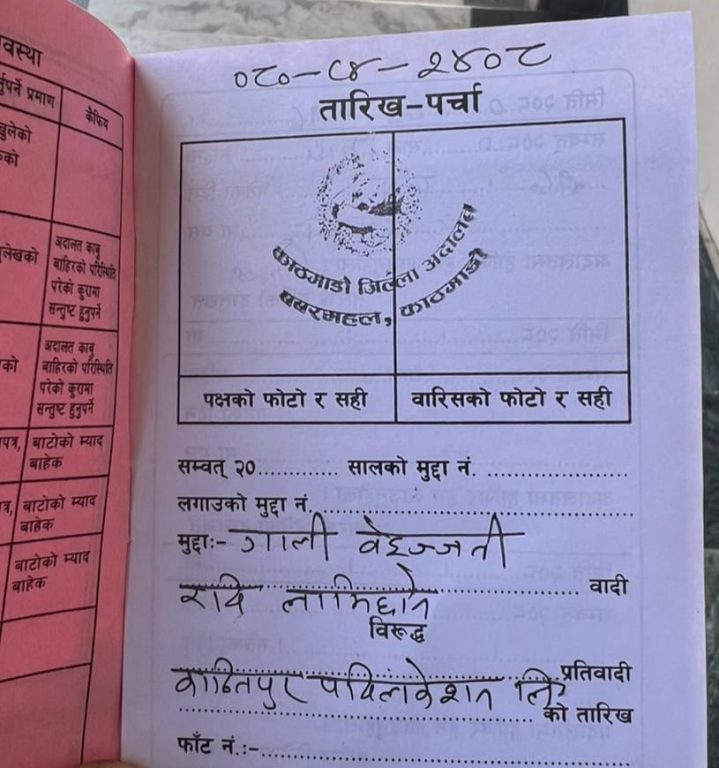 वस्था
र्नुपर्ने प्रमाण
कैफियत
खुलेको
को
लेखको
अदालत काबु
बाहिरको परिस्थिति
परेको कुरामा
सन्तुष्ट हुनुपर्ने
को
अदालत काबु
बाहिरको परिस्थिति
परेको कुरामा
सन्तुष्ट हुनुपर्ने
पत्र,
बाटोको म्याद
बाहेक
त्र,
बाटोको म्याद
बाहेक
बाटोको म्याद
बाहेक
०८०-C४-२४०८
तारिख-पर्चा
काठमाडौं जिल्ला अदालत
बबरमहल, काठमाडौं
पक्षको फोटो र सही
वारिसको फोटो र सही
सम्वत् २०............ सालको मुद्दा नं. ......................
लगाउको मुद्दा नं. ............................................
मुद्दाः- गाली वेइज्जती
रवि लामिछाने वादी
विरूद्ध
कान्तिपुर पब्लिकेशन लि प्रतिवादी
............................................................ को तारिख
फाँट नं.:-............................................................